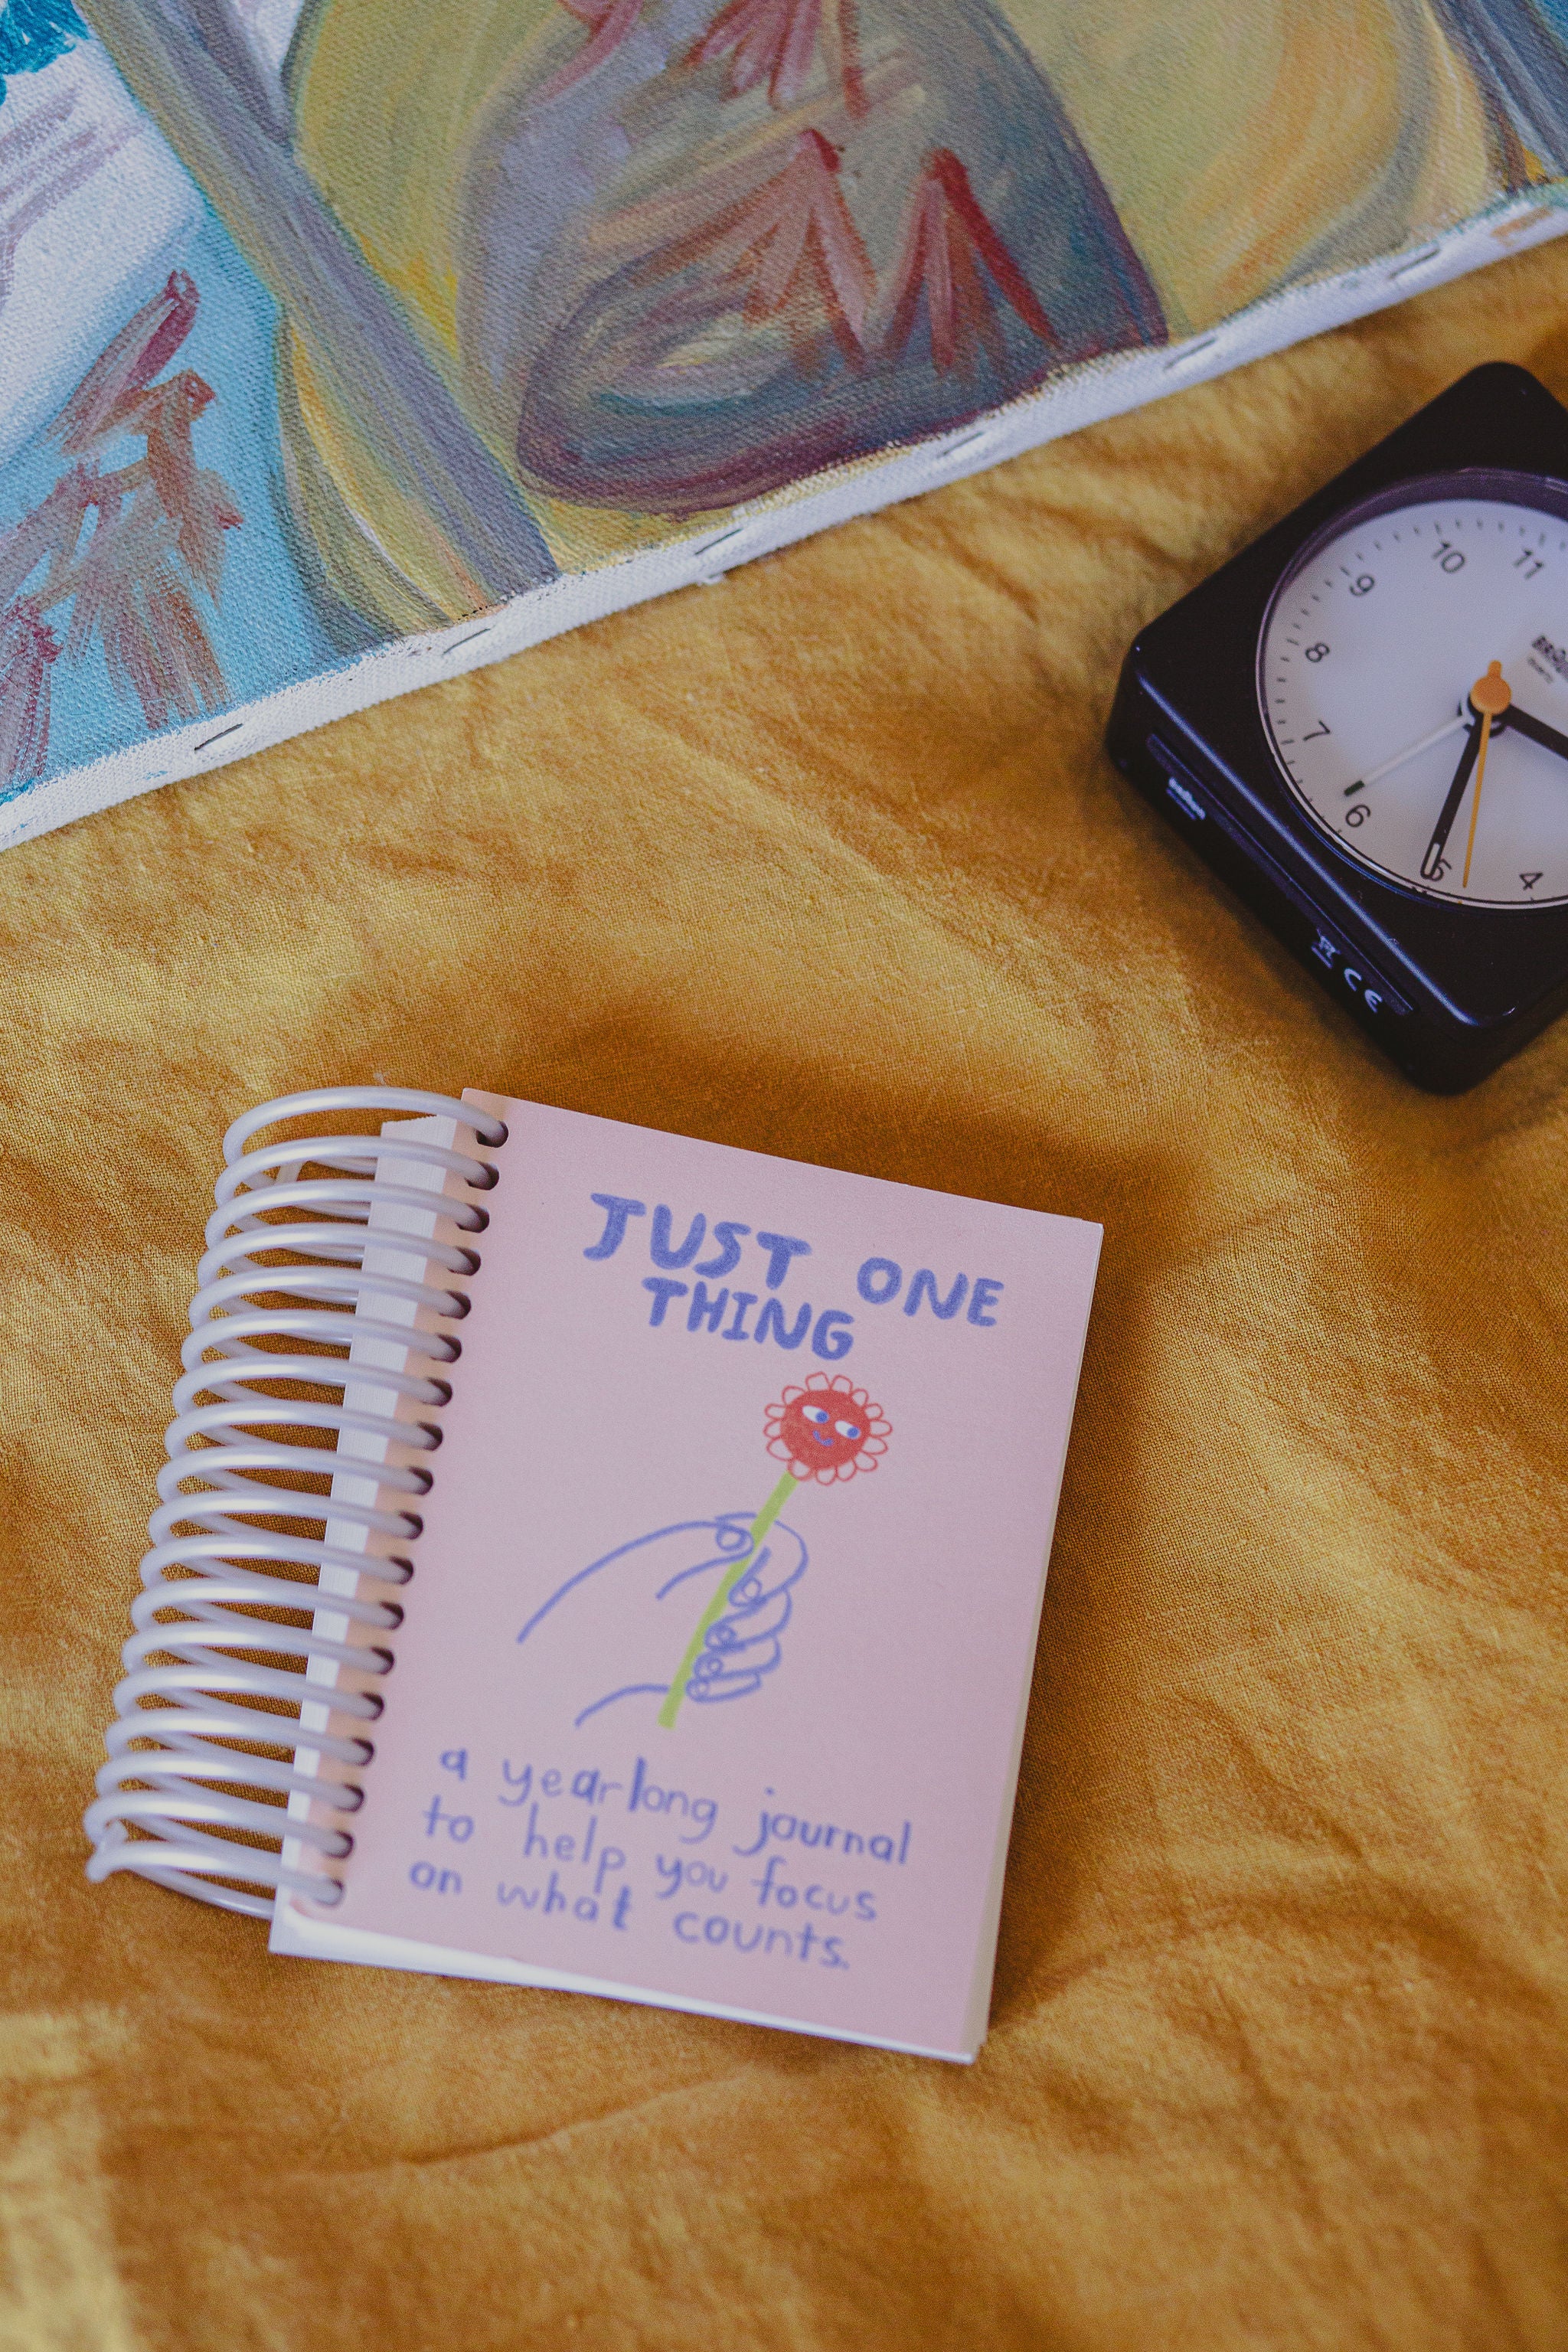 10
11
9
8
BRAUN
7
6
5
4
CE
JUST ONE
THING
a yearlong journal
to help you focus
on what counts.